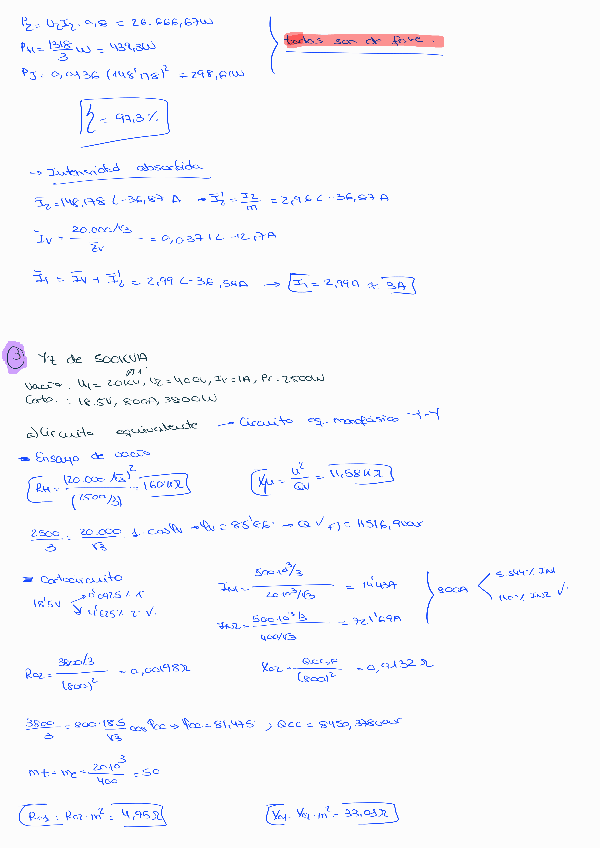 P2 = U2 I2 · 0,8 = 26.666,67W
PH = 1318/3 W = 439,3W
PJ = 0,0136 (148'178)² = 298,61W
todas son de fase.
η = 97,3%
→ Intensidad absorbida
I2 = 148,178 ∠-36,87 A → I2' = I2/m = 2,96 ∠-36,87 A
IV = 20.000/√3 / ZV = 0,0371 ∠-12,7A
I1 = IV + I2' = 2,99 ∠-36,54A → I1 = 2,99A ≈ 3A
3 Yz de 500kVA
Vacío: U1 = 20kV, U2 = 400V, IV = 1A, Pv = 2500W
Corto: 18.5V, 800A, 3800W
a) Circuito equivalente → Circuito eq. monofásico Y-Y
Ensayo de vacío
RH = (20.000/√3)² / (2500/3) = 160kΩ
Xμ = U²/QV = 11,58kΩ
2500/3 = 20.000/√3 · 1 · cosφv → φv = 85'86 → QV = 11516,9var
Cortocircuito
18'5V
I1N = 500·10³/3 / 20·10³/√3 = 14'43A
I2N = 500·10³/3 / 400/√3 = 721'69A
800A
RO2 = 3800/3 / (800)² = 0,00198Ω
XO2 = QCC,F / (800)² = 0,0132Ω
3800/3 = 800·18.5/√3 cosφcc → φcc = 81,475 ; QCC = 8450,378var
mt = mc = 20·10³/400 = 50
RO1 = RO2·m² = 4,95Ω
XO1 = XO2·m² = 33,01Ω